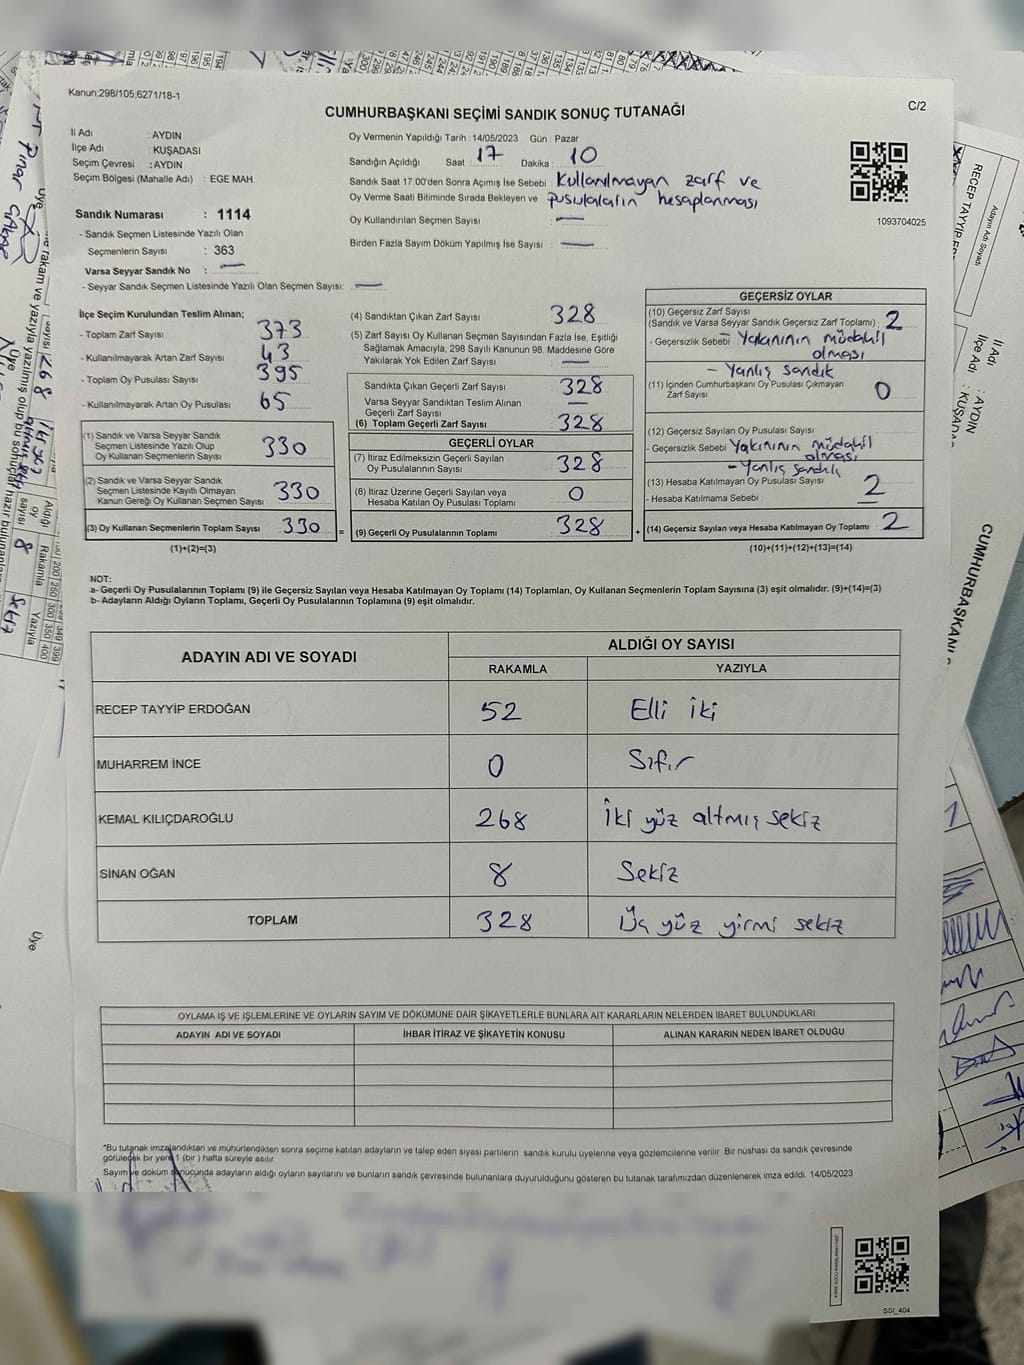 Kanun;298/105;6271/18-1
C/2
CUMHURBAŞKANI SEÇİMİ SANDIK SONUÇ TUTANAĞI
İl Adı : AYDIN
İlçe Adı : KUŞADASI
Seçim Çevresi : AYDIN
Seçim Bölgesi (Mahalle Adı) : EGE MAH.
Sandık Numarası : 1114
- Sandık Seçmen Listesinde Yazılı Olan
Seçmenlerin Sayısı : 363
Varsa Seyyar Sandık No : —
- Seyyar Sandık Seçmen Listesinde Yazılı Olan Seçmen Sayısı: —
Oy Vermenin Yapıldığı Tarih : 14/05/2023 Gün : Pazar
Sandığın Açıldığı Saat 17 Dakika : 10
Sandık Saat 17:00'den Sonra Açımış İse Sebebi : Kullanılmayan zarf ve
Oy Verme Saati Bitiminde Sırada Bekleyen ve pusulaların hesaplanması
Oy Kullandırılan Seçmen Sayısı : —
Birden Fazla Sayım Döküm Yapılmış İse Sayısı : —
1093704025
İlçe Seçim Kurulundan Teslim Alınan;
- Toplam Zarf Sayısı : 373
- Kullanılmayarak Artan Zarf Sayısı : 43
- Toplam Oy Pusulası Sayısı : 395
- Kullanılmayarak Artan Oy Pusulası : 65
(1) Sandık ve Varsa Seyyar Sandık
Seçmen Listesinde Yazılı Olup
Oy Kullanan Seçmenlerin Sayısı : 330
(2) Sandık ve Varsa Seyyar Sandık
Seçmen Listesinde Kayıtlı Olmayan
Kanun Gereği Oy Kullanan Seçmen Sayısı : 330
(3) Oy Kullanan Seçmenlerin Toplam Sayısı : 330 =
(1)+(2)=(3)
(4) Sandıktan Çıkan Zarf Sayısı : 328
(5) Zarf Sayısı Oy Kullanan Seçmen Sayısından Fazla İse, Eşitliği
Sağlamak Amacıyla, 298 Sayılı Kanunun 98. Maddesine Göre
Yakılarak Yok Edilen Zarf Sayısı : —
Sandıkta Çıkan Geçerli Zarf Sayısı : 328
Varsa Seyyar Sandıktan Teslim Alınan
Geçerli Zarf Sayısı : —
(6) Toplam Geçerli Zarf Sayısı : 328
GEÇERLİ OYLAR
(7) İtiraz Edilmeksizin Geçerli Sayılan
Oy Pusulalarının Sayısı : 328
(8) İtiraz Üzerine Geçerli Sayılan veya
Hesaba Katılan Oy Pusulası Toplamı : 0
(9) Geçerli Oy Pusulalarının Toplamı : 328 +
GEÇERSİZ OYLAR
(10) Geçersiz Zarf Sayısı
(Sandık ve Varsa Seyyar Sandık Geçersiz Zarf Toplamı) : 2
- Geçersizlik Sebebi : - Yakınının müdahil
olması
- Yanlış sandık
(11) İçinden Cumhurbaşkanı Oy Pusulası Çıkmayan
Zarf Sayısı : 0
(12) Geçersiz Sayılan Oy Pusulası Sayısı
- Geçersizlik Sebebi : - Yakınının müdahil
olması
- Yanlış sandık
(13) Hesaba Katılmayan Oy Pusulası Sayısı : 2
- Hesaba Katılmama Sebebi : —
(14) Geçersiz Sayılan veya Hesaba Katılmayan Oy Toplamı : 2
(10)+(11)+(12)+(13)=(14)
NOT:
a- Geçerli Oy Pusulalarının Toplamı (9) ile Geçersiz Sayılan veya Hesaba Katılmayan Oy Toplamı (14) Toplamları, Oy Kullanan Seçmenlerin Toplam Sayısına (3) eşit olmalıdır. (9)+(14)=(3)
b- Adayların Aldığı Oyların Toplamı, Geçerli Oy Pusulalarının Toplamına (9) eşit olmalıdır.
ADAYIN ADI VE SOYADI
ALDIĞI OY SAYISI
RAKAMLA YAZIYLA
RECEP TAYYİP ERDOĞAN 52 Elli iki
MUHARREM İNCE 0 Sıfır
KEMAL KILIÇDAROĞLU 268 İki yüz altmış sekiz
SİNAN OĞAN 8 Sekiz
TOPLAM 328 Üç yüz yirmi sekiz
OYLAMA İŞ VE İŞLEMLERİNE VE OYLARIN SAYIM VE DÖKÜMÜNE DAİR ŞİKAYETLERLE BUNLARA AİT KARARLARIN NELERDEN İBARET BULUNDUKLARI
ADAYIN ADI VE SOYADI İHBAR İTİRAZ VE ŞİKAYETİN KONUSU ALINAN KARARIN NEDEN İBARET OLDUĞU
*Bu tutanak imzalandıktan ve mühürlendikten sonra seçime katılan adayların ve talep eden siyasi partilerin sandık kurulu üyelerine veya gözlemcilerine verilir. Bir nüshası da sandık çevresinde
görülecek bir yere 1 (bir ) hafta süreyle asılır.
Sayım ve döküm sonucunda adayların aldığı oyların sayılarını ve bunların sandık çevresinde bulunanlara duyurulduğunu gösteren bu tutanak tarafımızdan düzenlenerek imza edildi. 14/05/2023
SSI_404
RECEP TAYYİP
Adayın Adı Soyadı
İl Adı : AYDIN
İlçe Adı : KUŞADA
CUMHURBAŞKANI
Üye
Pınar
rakam ve yazıyla yazılmış olup bu
Aldığı
oy
sayısı
Rakamla
8
Yazıyla
Sekiz
Üye